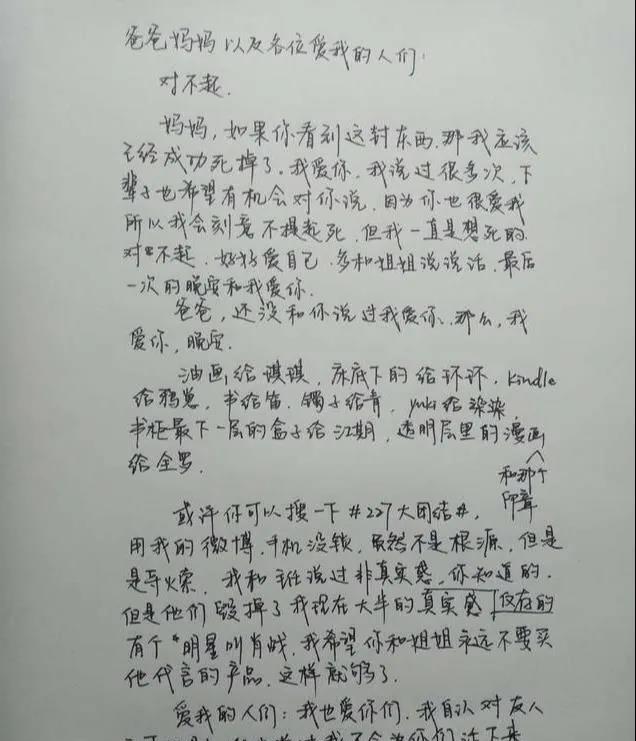 爸爸妈妈以及各位爱我的人们：
对不起.
妈妈，如果你看到这封东西.那我应该
已经成功死掉了.我爱你.我说过很多次.下
辈子也希望有机会对你说.因为你也很爱我
所以我会刻意不提起死.但我一直是想死的.
对不起.好好爱自己.多和姐姐说说话.最后
一次的晚安和我爱你.
爸爸，还没和你说过我爱你.那么，我
爱你，晚安.
油画给琪琪，床底下的给环环.kindle
给鸦崽，书给笛.镯子给青，yuki给染染.
书柜最下一层的盒子给江期，透明层里的漫画
和那个
印章
给全罗.
或许你可以搜一下#227大团结#，
用我的微博.手机没锁.虽然不是根源.但是
是导火索.我和主任说过非真实感.你知道的.
但是他们毁掉了我现在大半的真实感 仅存的
有个"明星叫肖战.我希望你和姐姐永远不要买
他代言的产品.这样就够了.
爱我的人们：我也爱你们.我自认对友人